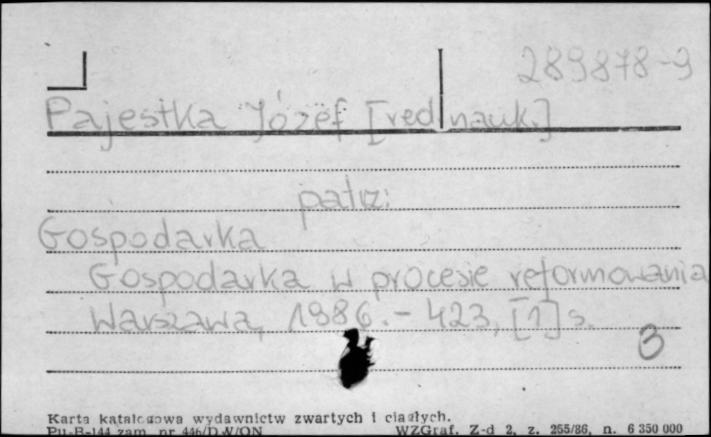 289878-9
Pajestka Józef [red nauk.]
patrz:
Gospodarka
Gospodarka w procesie reformowania
Warszawa, 1986. - 423, [1] s.
3
Karta katalogowa wydawnictw zwartych i ciągłych.
Pu-B-144 zam. nr 446/D W/ON WZGraf. Z-d 2, z. 255/86, n. 6 350 000